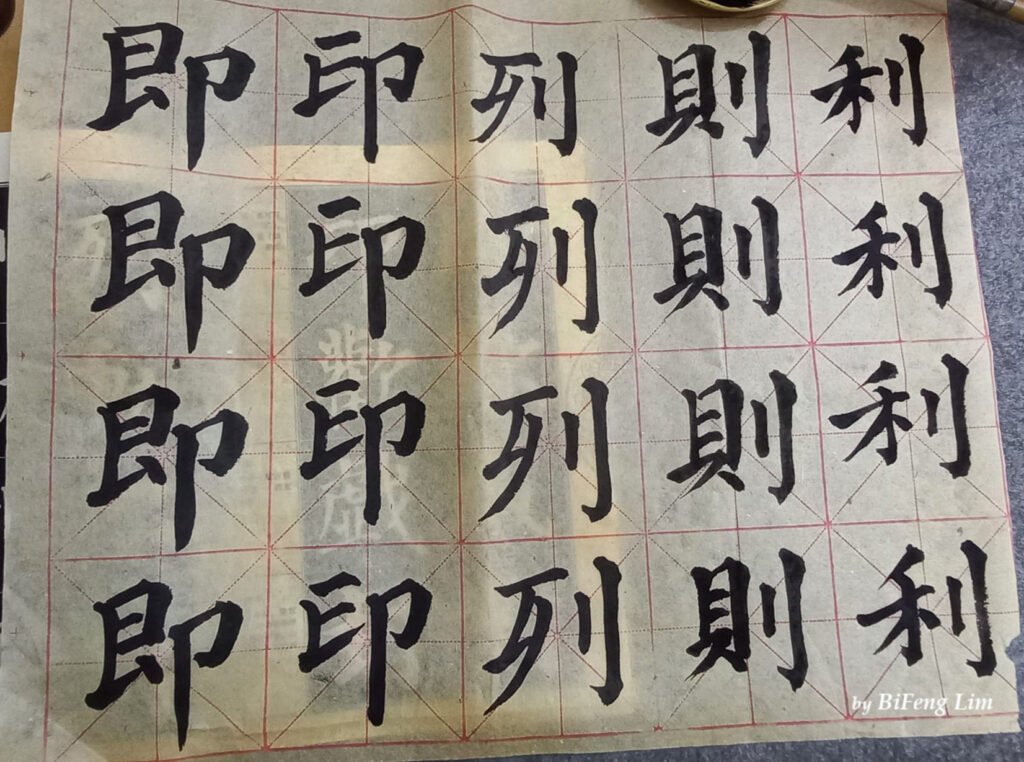 利利利利
則則則則
列列列列
印印印印
即即即即
by BiFeng Lim